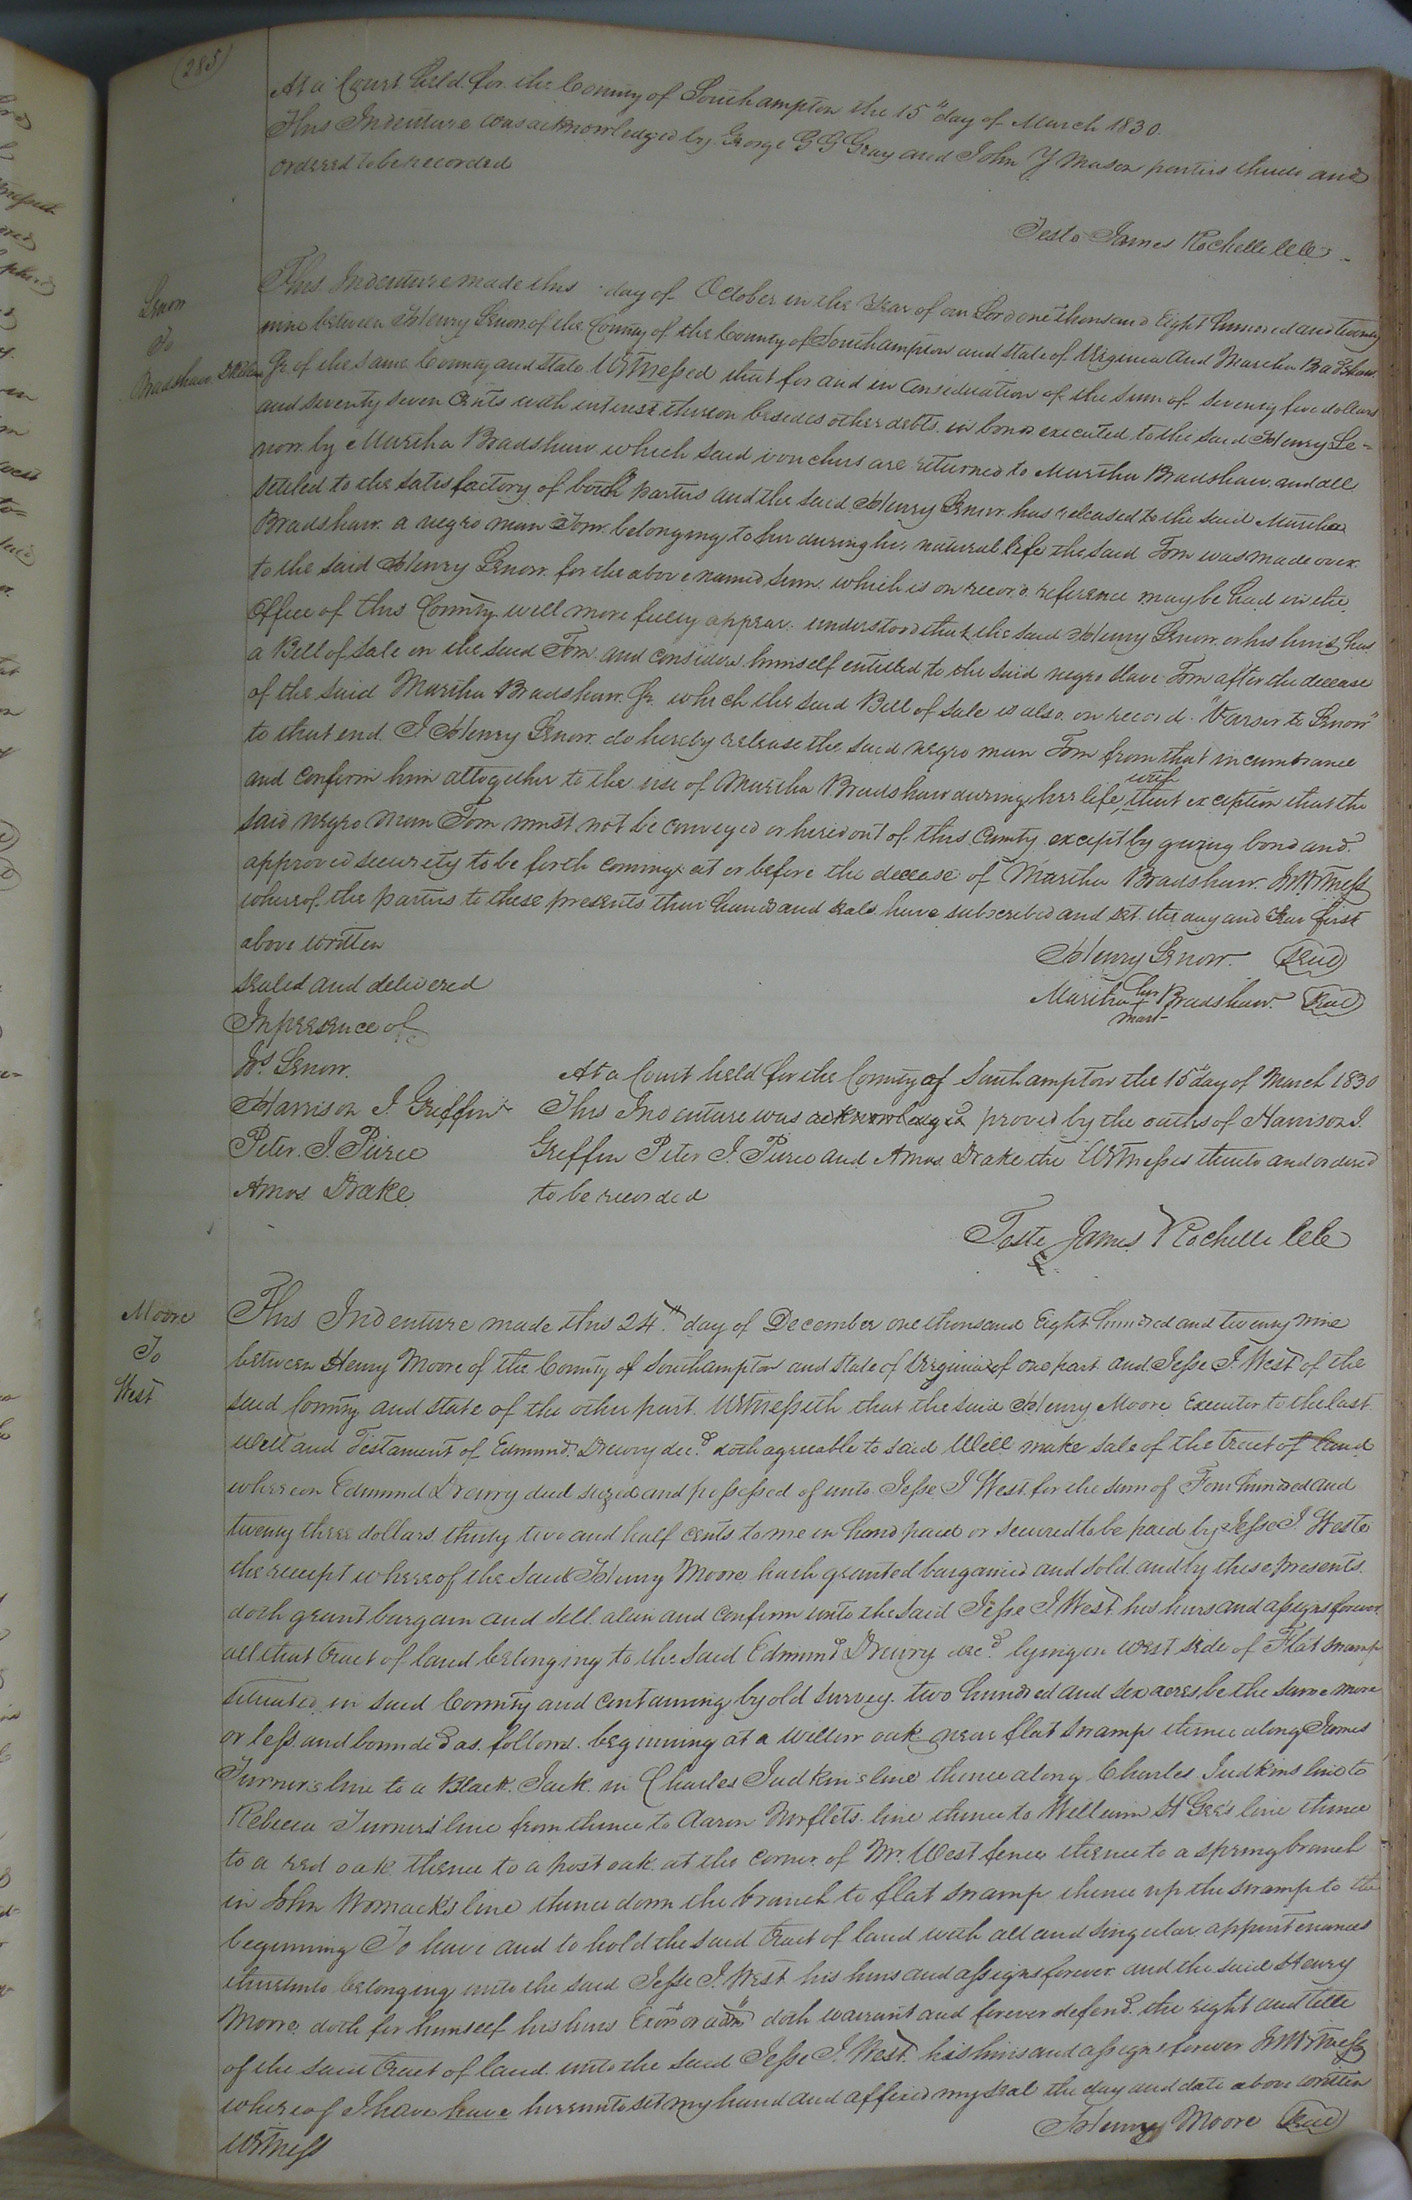 (285)
At a Court held for the County of Southampton the 15" day of March 1830.
This Indenture was acknowledged by George G G Gray and John Y Mason parties thereto and
ordered to be recorded
Teste James Rochelle Clk
Lenow
To
Bradshaw
This Indenture made this day of October in the Year of our Lord one thousand Eight hundred and twenty
nine between Henry Lenow of the County of the County of Southampton and State of Virginia and Martha Bradshaw
Jr. of the same County and State Witnessed that for and in Consideration of the sum of seventy five dollars
and seventy seven Cents with interest thereon besides other debts in bonds executed to the said Henry Le=
now by Martha Bradshaw which said vouchers are returned to Martha Bradshaw and all
settled to the satisfactory of both parties and the said Henry Lenow has released to the said Martha
Bradshaw a negro man Tom belonging to her during her natural life the said Tom was made over
to the said Henry Lenow for the above named sum which is on record reference may be had in the
Office of this County will more fully appear understood that the said Henry Lenow or his heirs has
a Bill of Sale on the said Tom and considers himself entitled to the said negro slave Tom after the decease
of the said Martha Bradshaw Jr. which the said Bill of Sale is also on record to Lenow"
to that end I Henry Lenow do hereby release the said negro man Tom from that incumbrance
and confirm him altogether to the use of Martha Bradshaw during her life with that exception that the
said negro man Tom must not be conveyed or hired out of this County except by giving bond and
approved security to be forth coming at or before the decease of Martha Bradshaw In Witness
whereof the parties to these presents their hands and seals have subscribed and set the day and Year first
above written
Henry Lenow (Seal)
sealed and delivered
Martha her + mark Bradshaw (Seal)
In presence of
Js. Lenow
Harrison J. Griffin
Peter J. Pierce
Amos Drake
At a Court held for the County of Southampton the 15" day of March 1830
This Indenture was acknowledged proved by the oaths of Harrison J.
Griffin Peter J. Pierce and Amos Drake the Witnesses thereto and ordered
to be recorded
Teste James Rochelle Clk
Moore
To
West
This Indenture made this 24th day of December one thousand Eight hundred and twenty nine
between Henry Moore of the County of Southampton and State of Virginia of one part and Jesse J. West of the
said County and State of the other part. Witnesseth that the said Henry Moore Executor to the last
Will and Testament of Edmund Drewry decd. doth agreeable to said Will make sale of the tract of land
whereon Edmund Drewry died seized and possessed of unto Jesse J West for the sum of Four hundred and
twenty three dollars thirty two and half cents to me in hand paid or secured to be paid by Jesse J. West
the receipt whereof the said Henry Moore hath granted bargained and sold and by these presents
doth grant bargain and sell alien and confirm unto the said Jesse J. West his heirs and assigns forever
all that tract of land belonging to the said Edmund Drewry decd. lying on west side of Flat swamp
situated in said County and containing by old survey two hundred and six acres be the same more
or less and bounded as follows. beginning at a willow oak near flat swamp thence along James
Turner's line to a Black Jack in Charles Judkin's line thence along Charles Judkins line to
Rebecca Turners line from thence to Aaron Norflets line thence to William H Gee's line thence
to a red oak thence to a post oak at the corner of Mr. West fence thence to a spring branch
in John Womack's line thence down the branch to flat swamp thence up the swamp to the
beginning To have and to hold the said tract of land with all and singular appurtenances
thereunto belonging unto the said Jesse J. West his heirs and assigns forever and the said Henry
Moore doth for himself his heirs Exors or adms doth warrant and forever defend the right and title
of the said tract of land unto the said Jesse J. West his heirs and assigns forever In Witness
whereof I have have hereunto set my hand and affixed my seal the day and date above written
Henry Moore (Seal)
Witness